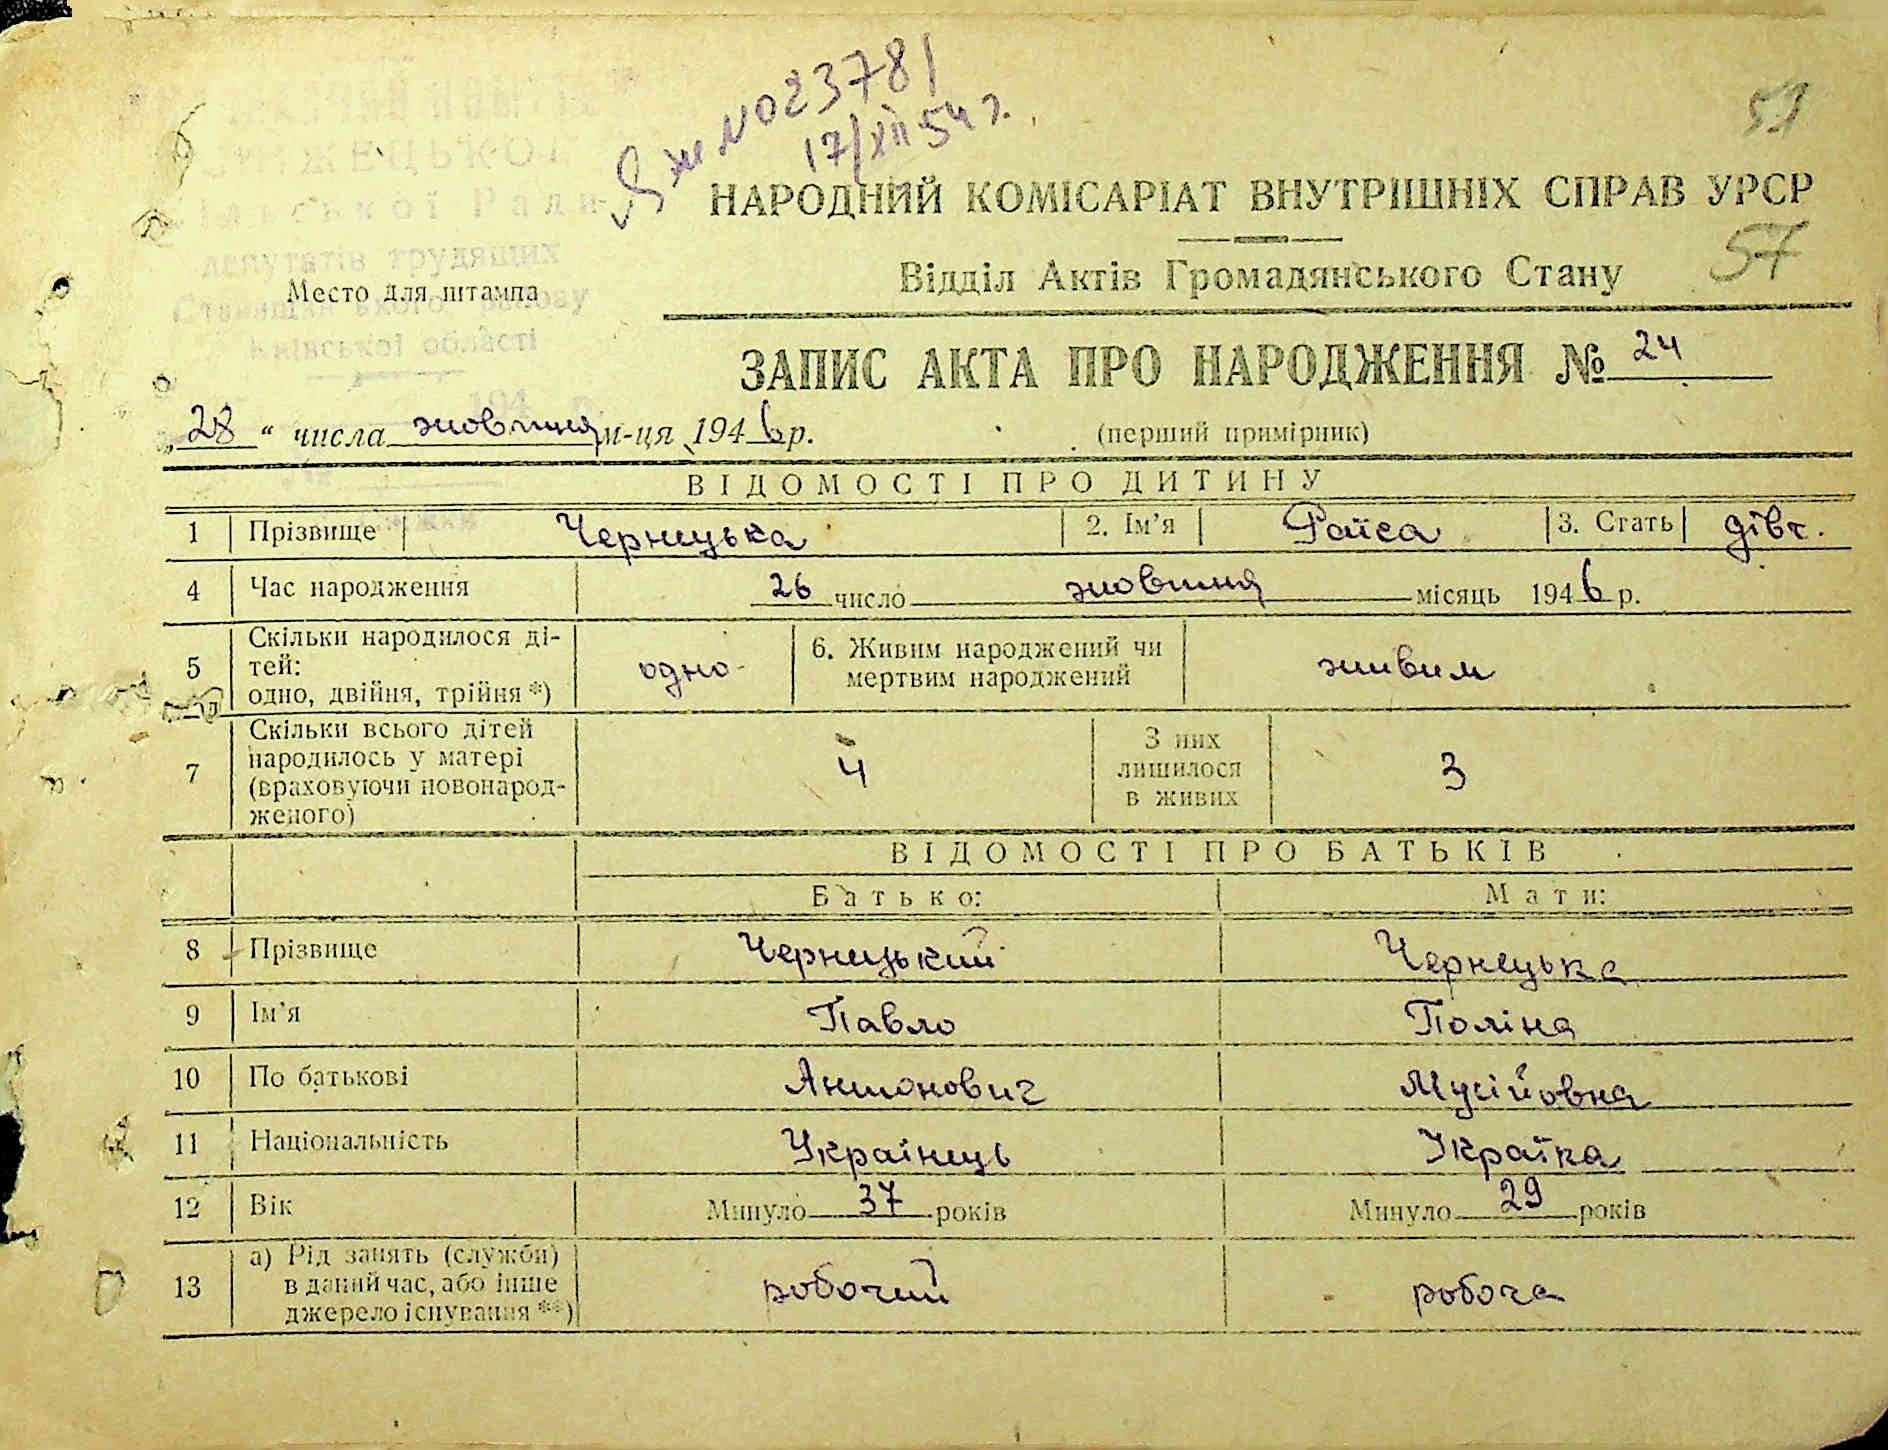 №023781
17/XII 54 г.
57
НАРОДНИЙ КОМІСАРІАТ ВНУТРІШНІХ СПРАВ УРСР
57
Відділ Актів Громадянського Стану
депутатів трудящих
Место для штампа
Київської області
ЗАПИС АКТА ПРО НАРОДЖЕННЯ № 24
„28“ числа жовтня м-ця 1946 р. (перший примірник)
ВІДОМОСТІ ПРО ДИТИНУ
1 Прізвище Чернецька 2. Ім'я Раїса 3. Стать дівч.
4 Час народження 26 число жовтня місяць 1946 р.
5 Скільки народилося ді-
тей:
одно, двійня, трійня *) одно 6. Живим народжений чи
мертвим народжений живим
7 Скільки всього дітей
народилось у матері
(враховуючи новонарод-
женого) 4 З них
лишилося
в живих 3
ВІДОМОСТІ ПРО БАТЬКІВ
Батько: Мати:
8 Прізвище Чернецький Чернецька
9 Ім'я Павло Поліна
10 По батькові Антонович Мусійовна
11 Національність Українець Україка
12 Вік Минуло 37 років Минуло 29 років
13 а) Рід занять (служби)
в даний час, або інше
джерело існування **) робочий робоча